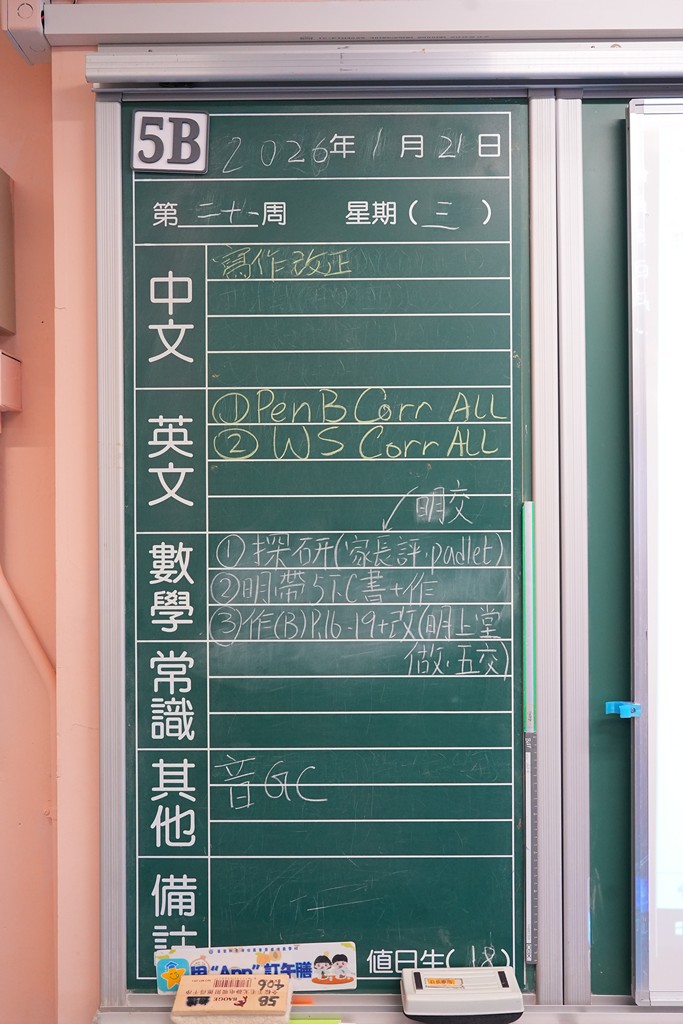 5B 2026年1月21日
第二十一周 星期(三)
中文
寫作改正
英文
①Pen B Corr ALL
② WS Corr ALL
明交
數學
①探研(家長評.padlet)
②明帶5下C書+作
③作(B)P.16-19+改(明上堂
做.五交)
常識
其他
音GC
備註
值日生(18)
用“App”訂午膳
5B
406